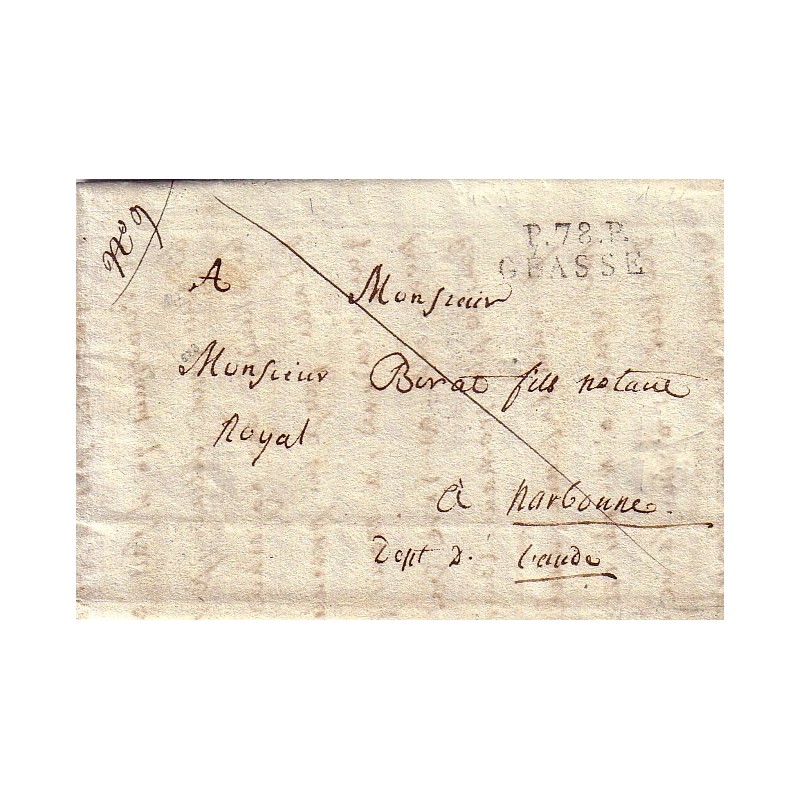 No 9
P.78.P.
GRASSE
A Monsieur
Monsieur Birat fils notaire
Royal
à narbonne.
Dept D. L'aude